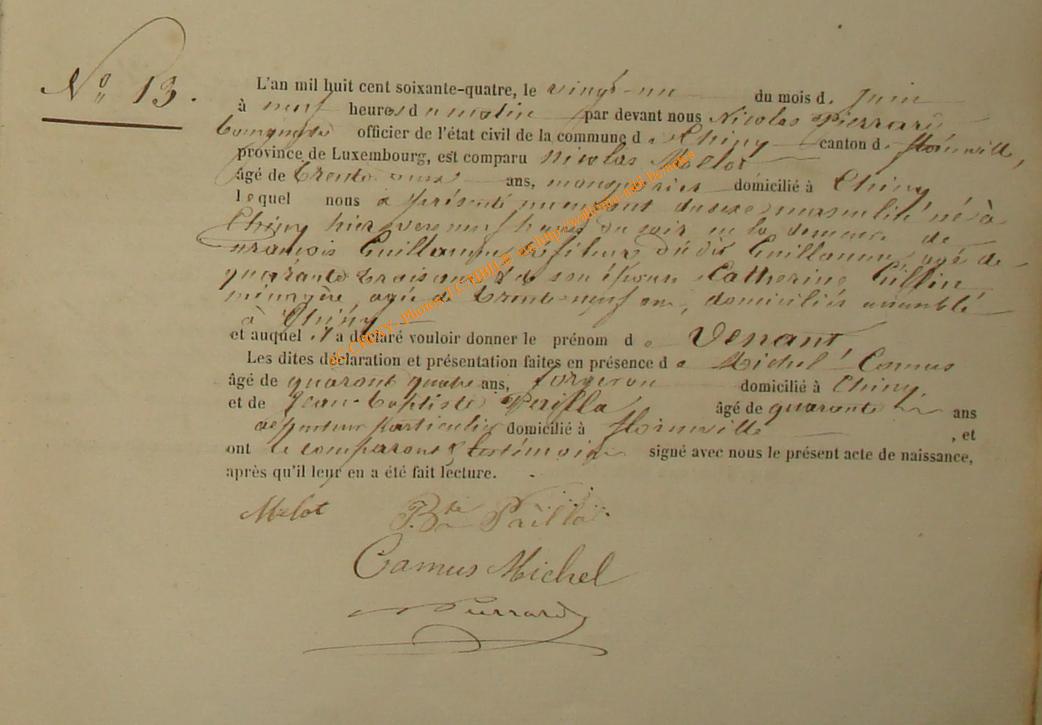 N° 13.
L'an mil huit cent soixante-quatre, le vingt-un du mois d. Juin
à neuf heures du matin par devant nous Nicolas Pierrard
Bourgmestre officier de l'état civil de la commune de Chiny canton de florenville,
province de Luxembourg, est comparu Nicolas Melot
âgé de trente ans, domicilié à Chiny
lequel nous a présenté un enfant du sexe masculin né à
Chiny hier vers neuf heures du soir en la demeure de
françois Guillaume fileur du dit Guillaume, agé de
quarante trois ans & de son épouse Catherine
ménagère, agée de trente-neuf ans, domiciliés ensemble
à Chiny
et auquel il a déclaré vouloir donner le prénom de Venant
Les dites déclaration et présentation faites en présence de Michel Camus
âgé de quarante quatre ans, forgeron domicilié à Chiny
et de Jean-baptiste âgé de quarante ans
particulier domicilié à florenville , et
ont le comparant & les témoins signé avec nous le présent acte de naissance,
après qu'il leur en a été fait lecture.
Melot Bte
Camus Michel
Pierrard